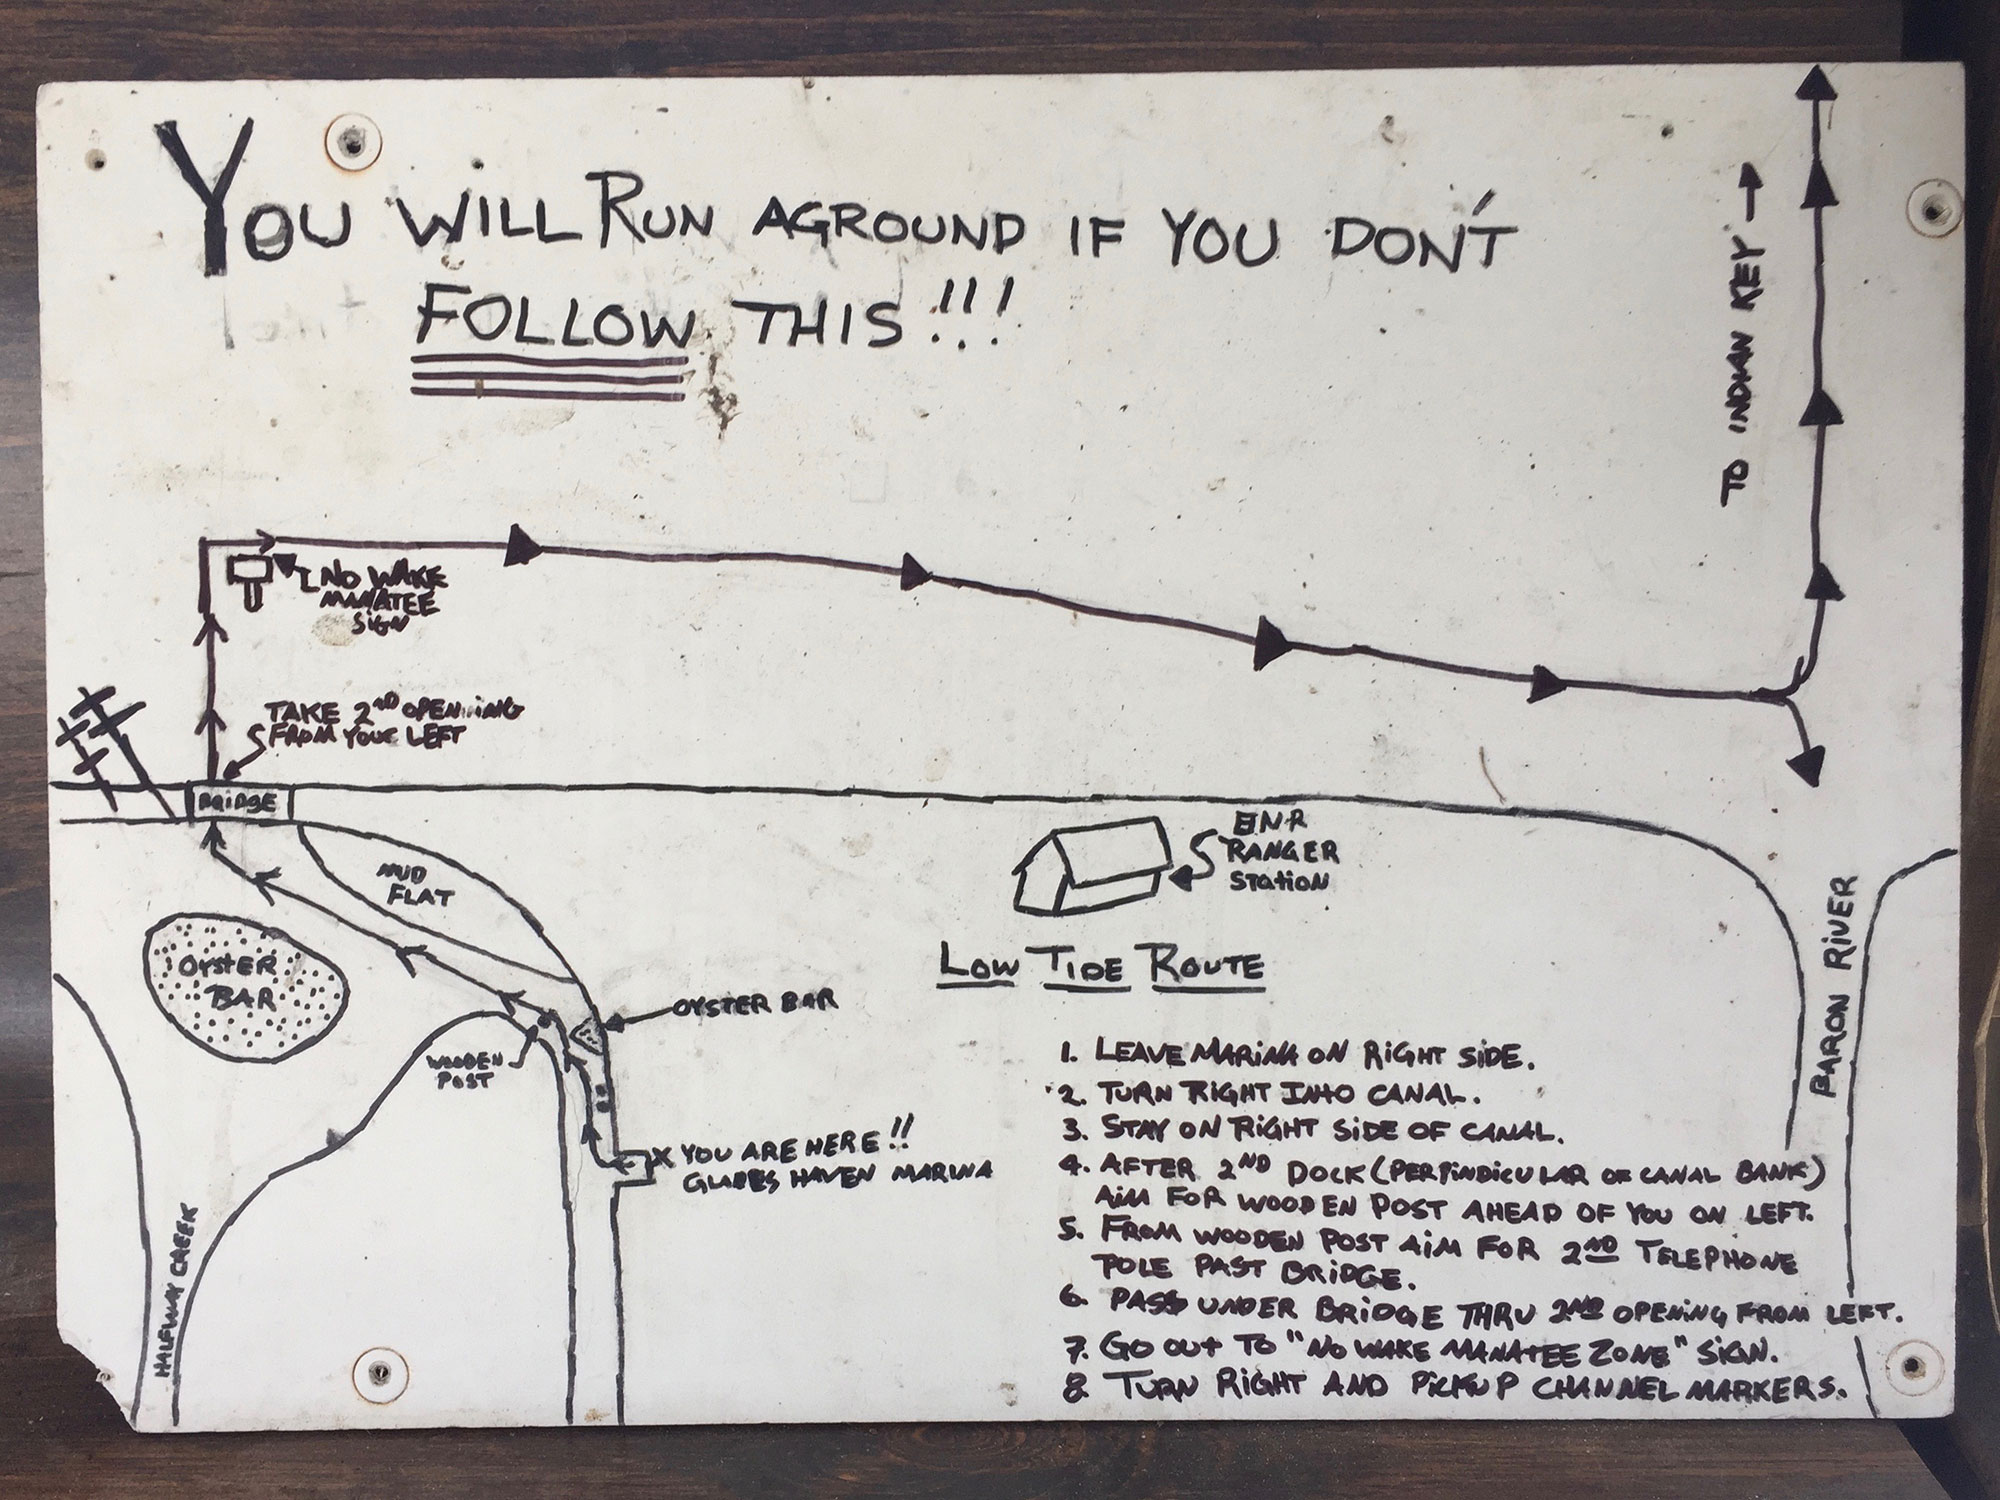 YOU WILL RUN AGROUND IF YOU DON'T
FOLLOW THIS!!!
TO INDIAN KEY →
NO WAKE
MANATEE
SIGN
TAKE 2ND OPENING
FROM YOUR LEFT
BRIDGE
MUD
FLAT
OYSTER
BAR
ENR
RANGER
STATION
BARON RIVER
OYSTER BAR
WOODEN
POST
X YOU ARE HERE!!
GLADES HAVEN MARINA
HALFWAY CREEK
LOW TIDE ROUTE
1. LEAVE MARINA ON RIGHT SIDE.
2. TURN RIGHT INTO CANAL.
3. STAY ON RIGHT SIDE OF CANAL.
4. AFTER 2ND DOCK (PERPINDICULAR OF CANAL BANK)
AIM FOR WOODEN POST AHEAD OF YOU ON LEFT.
5. FROM WOODEN POST AIM FOR 2ND TELEPHONE
POLE PAST BRIDGE.
6. PASS UNDER BRIDGE THRU 2ND OPENING FROM LEFT.
7. GO OUT TO "NO WAKE MANATEE ZONE" SIGN.
8. TURN RIGHT AND PICKUP CHANNEL MARKERS.